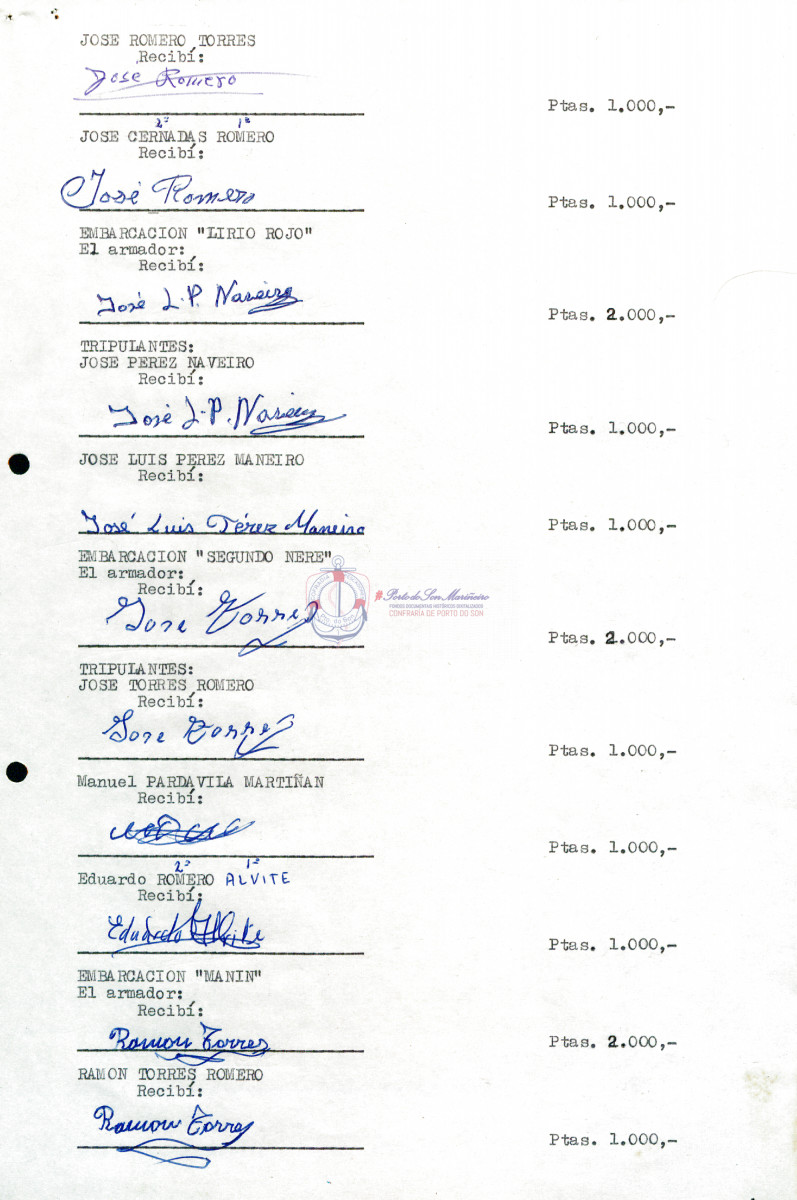 JOSE ROMERO TORRES
Recibí:
Jose Romero
Ptas. 1.000,-
2º 1º
JOSE CERNADAS ROMERO
Recibí:
José Romero
Ptas. 1.000,-
EMBARCACION "LIRIO ROJO"
El armador:
Recibí:
José L.P. Naveiro
Ptas. 2.000,-
TRIPULANTES:
JOSE PEREZ NAVEIRO
Recibí:
José L.P. Naveiro
Ptas. 1.000,-
JOSE LUIS PEREZ MANEIRO
Recibí:
José Luis Pérez Maneiro
Ptas. 1.000,-
EMBARCACION "SEGUNDO NERE"
El armador:
Recibí:
Jose Torres
#Porto do Son Mariñeiro
FONDOS DOCUMENTAIS HISTÓRICOS DIXITALIZADOS
CONFRARIA DE PORTO DO SON
Ptas. 2.000,-
TRIPULANTES:
JOSE TORRES ROMERO
Recibí:
Jose Torres
Ptas. 1.000,-
Manuel PARDAVILA MARTIÑAN
Recibí:
Ptas. 1.000,-
2º 1º
Eduardo ROMERO ALVITE
Recibí:
Eduardo Alvite
Ptas. 1.000,-
EMBARCACION "MANIN"
El armador:
Recibí:
Ramon Torres
Ptas. 2.000,-
RAMON TORRES ROMERO
Recibí:
Ramon Torres
Ptas. 1.000,-